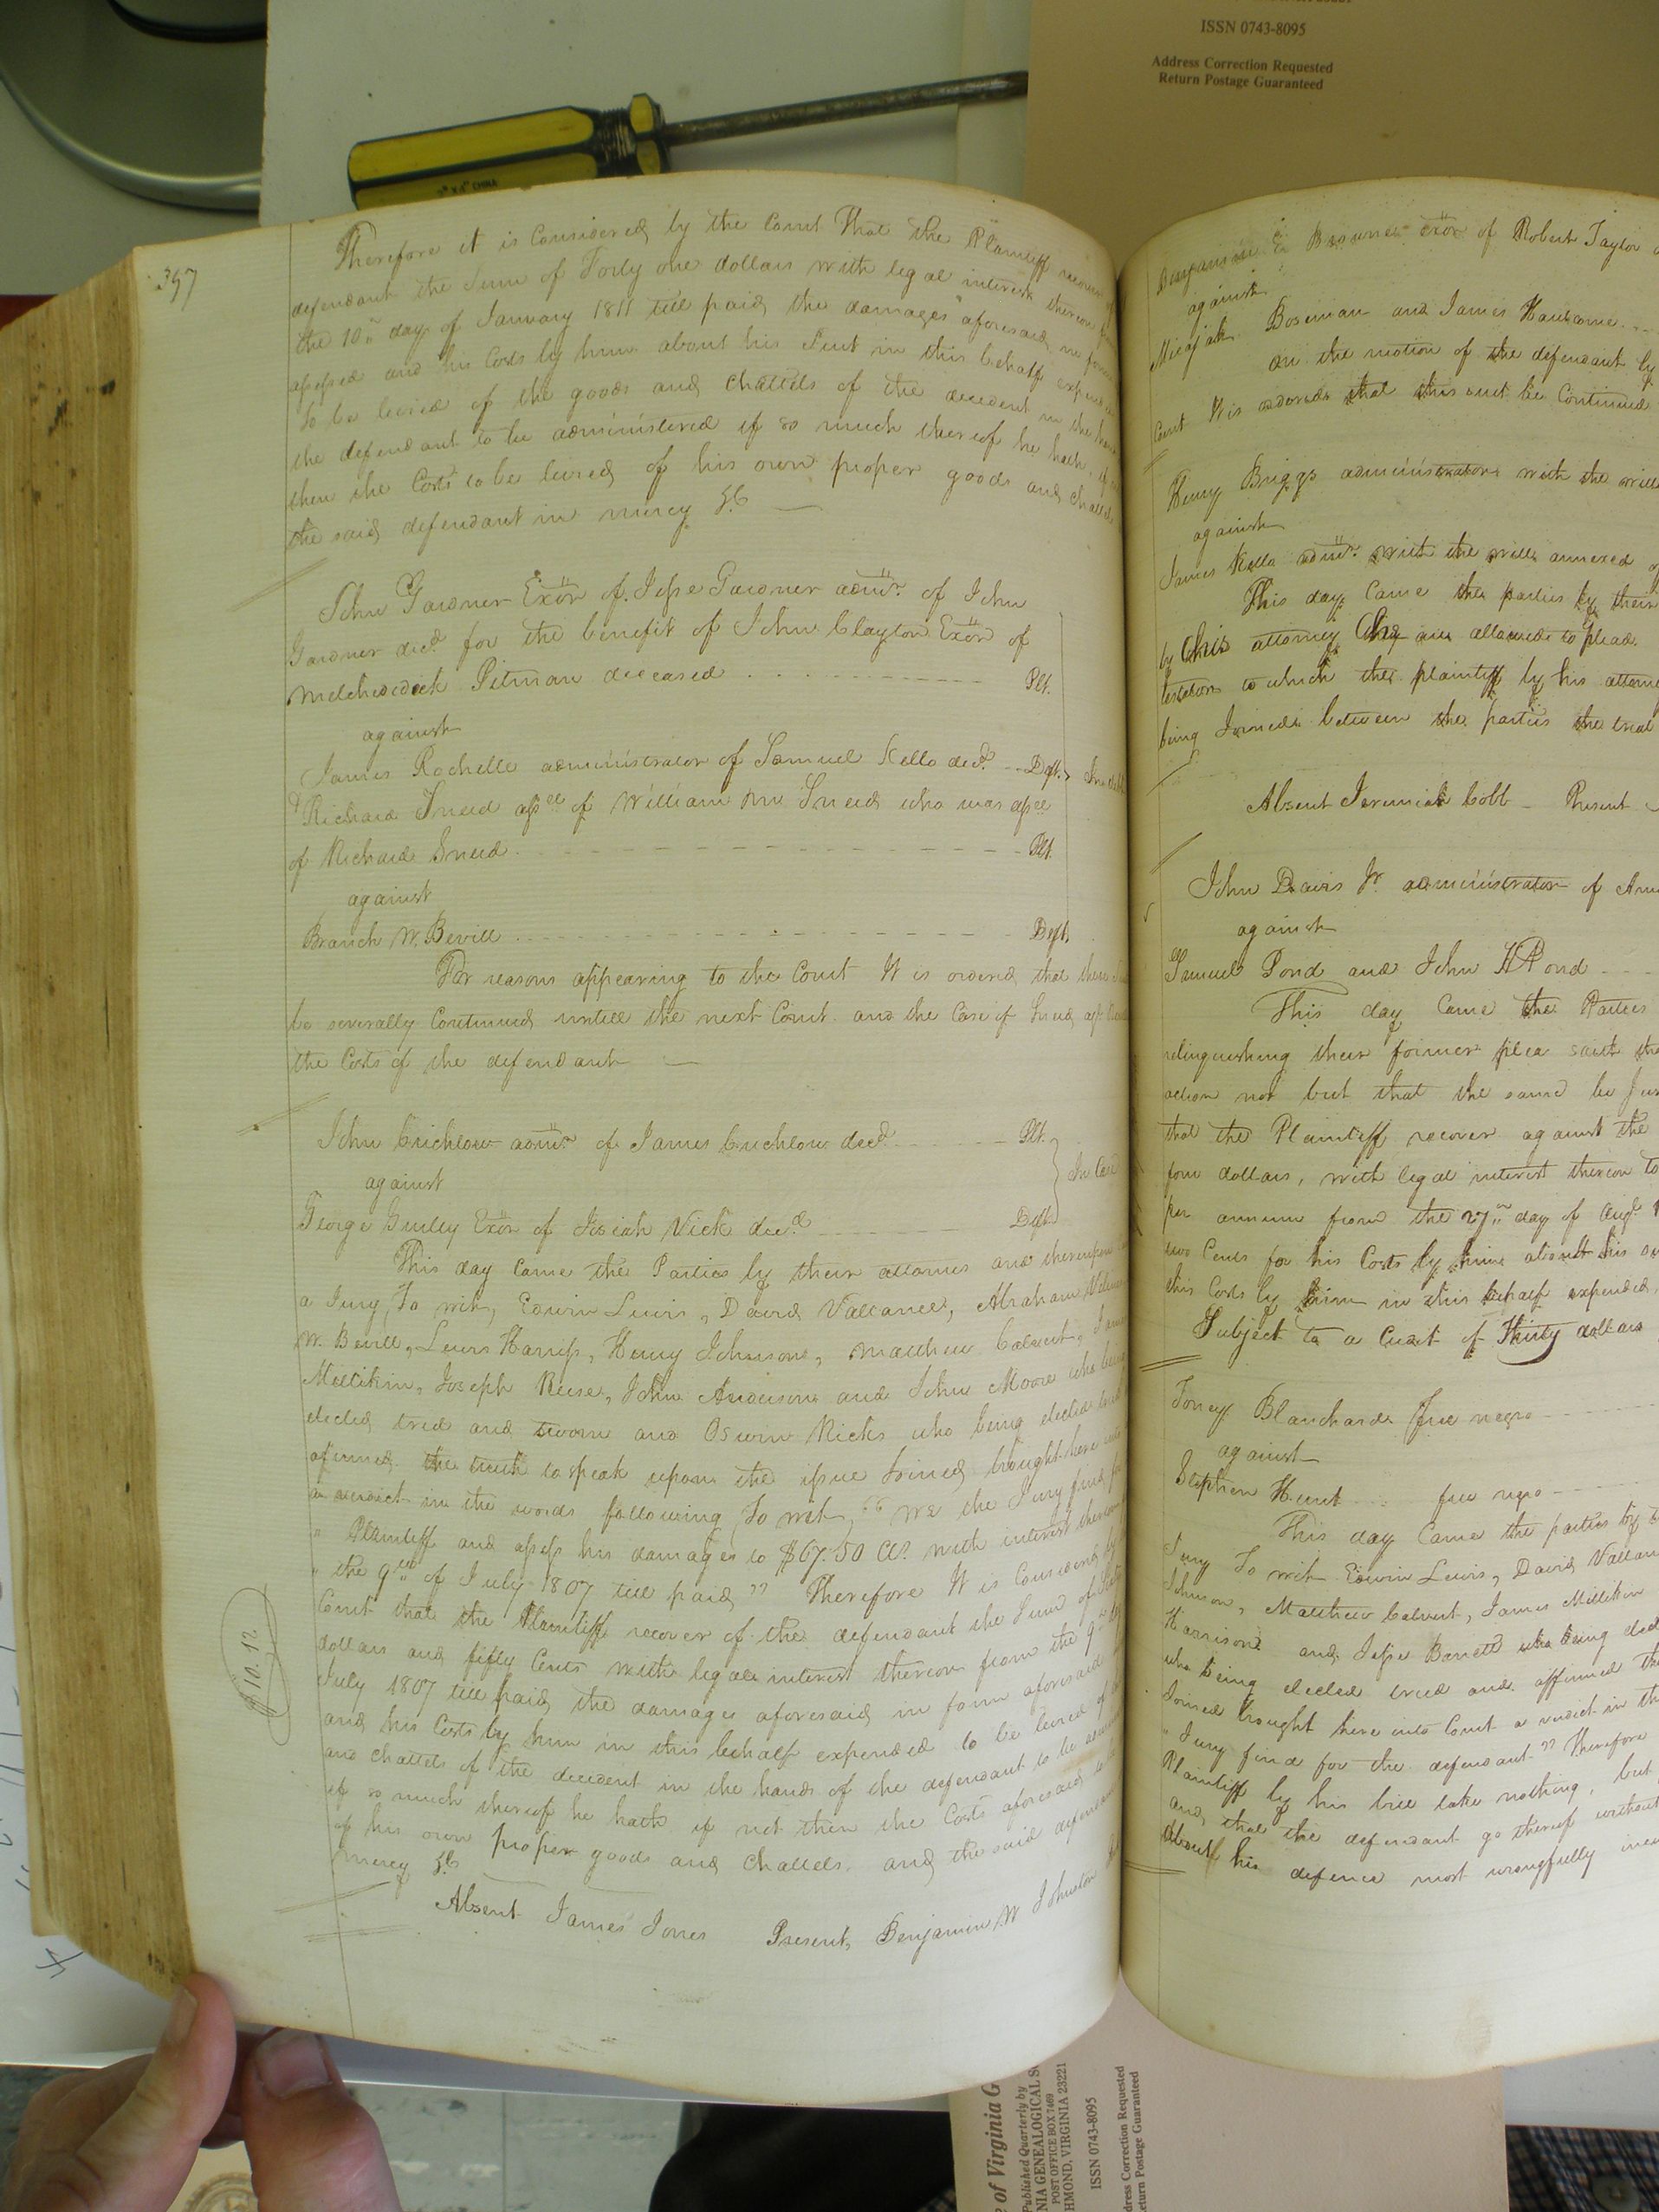 ISSN 0743-8095
Address Correction Requested
Return Postage Guaranteed
CHINA
397
Therefore it is Considered by the Court That the Plaintiff recover of
defendant the Sum of Forty one dollars with legal interest thereon from
the 10th day of January 1811 till paid, the damages aforesaid in form
assessed and his Costs by him about his Suit in this behalf expended
to be levied of the goods and chattels of the decedent in the hands
the defendant to be administered if so much thereof he hath, if
then the Costs to be levied of his own proper goods and chattels
the said defendant in mercy &C
John Gardner Exor of Jesse Gardner admr. of John
Gardner decd. for the benefit of John Clayton Exor of
Melchezedeck Pitman deceased Plt.
against
James Rochelle administrator of Samuel Kello decd. Deft.
Richard Sneed assee of William M Sneed who was assee
of Richard Sneed Plt.
against
Branch W. Bevill Deft.
For reasons appearing to the Court It is ordered that these
be severally Continued untill the next Court and the Case of Sneed agt
the Costs of the defendant
John Crichlow admr of James Crichlow decd Plt.
against
George Gurley Exor of Josiah Vick decd. Deft.
This day Came the Parties by their attornies and thereupon
a Jury, To wit, Edwin Lewis, David Vallance, Abraham
W. Bevill, Lewis Harriss, Henry Johnson, Matthew Calvert,
Millikin, Joseph Reese, John Anderson and John Moore who being
elected tried and sworn and Oswin Ricks who being elected tried
afirmed the truth to speak upon the issue Joined brought here into
a verdict in the words following, To wit, "We the Jury find for
" Plaintiff and assess his damages to $67.50 Cts. with interest thereon
" the 9th of July 1807 till paid" Therefore It is Considered by
Court that the Plaintiff recover of the defendant the Sum of
dollars and fifty Cents with legal interest thereon from the 9th
July 1807 till paid, the damages aforesaid in form aforesaid
and his Costs by him in this behalf expended to be levied of
and chattels of the decedent in the hands of the defendant to be
if so much thereof he hath if not then the Costs aforesaid to
of his own proper goods and chattels. and the said defendant
mercy &C
$10.12
Absent James Jones Present, Benjamin W Johnston
Exor of Robert Taylor
against
Micajah Boseman and James Hansome
On the motion of the defendant by
Court It is ordered that this suit be Continued
Henry Briggs administrator with the will
against
James Kello admr. with the will annexed of
This day Came the parties by their
by his attorney allowed to plead.
testator to which the plaintiff by his attorney
being Joined between the parties the trial
Absent Jeremiah Cobb Present
John Davis Jr. administrator of
against
Samuel Pond and John H Pond
This day Came the Parties
relinquishing their former plea saith
action nor but that the same be Just
that the Plaintiff recover against the
four dollars, with legal interest thereon to
per annum from the 27th day of Augt.
two Cents for his Costs by him about his
his Costs by him in this behalf expended,
Subject to a Credit of Thirty dollars
Toney Blanchard free negro
against
Stephen Hunt free negro
This day Came the parties by
Jury To wit Edwin Lewis, David
Johnson, Matthew Calvert, James Millikin
Harrison and Jesse Barrett who being
who being elected tried and affirmed the
Joined brought here into Court a verdict in the
" Jury find for the defendant" Therefore
Plaintiff by his bill take nothing, but
and that the defendant go thereof without
About his defence most wrongfully
of Virginia
Published Quarterly by
GENEALOGICAL
POST OFFICE BOX 7469
RICHMOND, VIRGINIA 23221
ISSN 0743-8095
Address Correction Requested
Return Postage Guaranteed